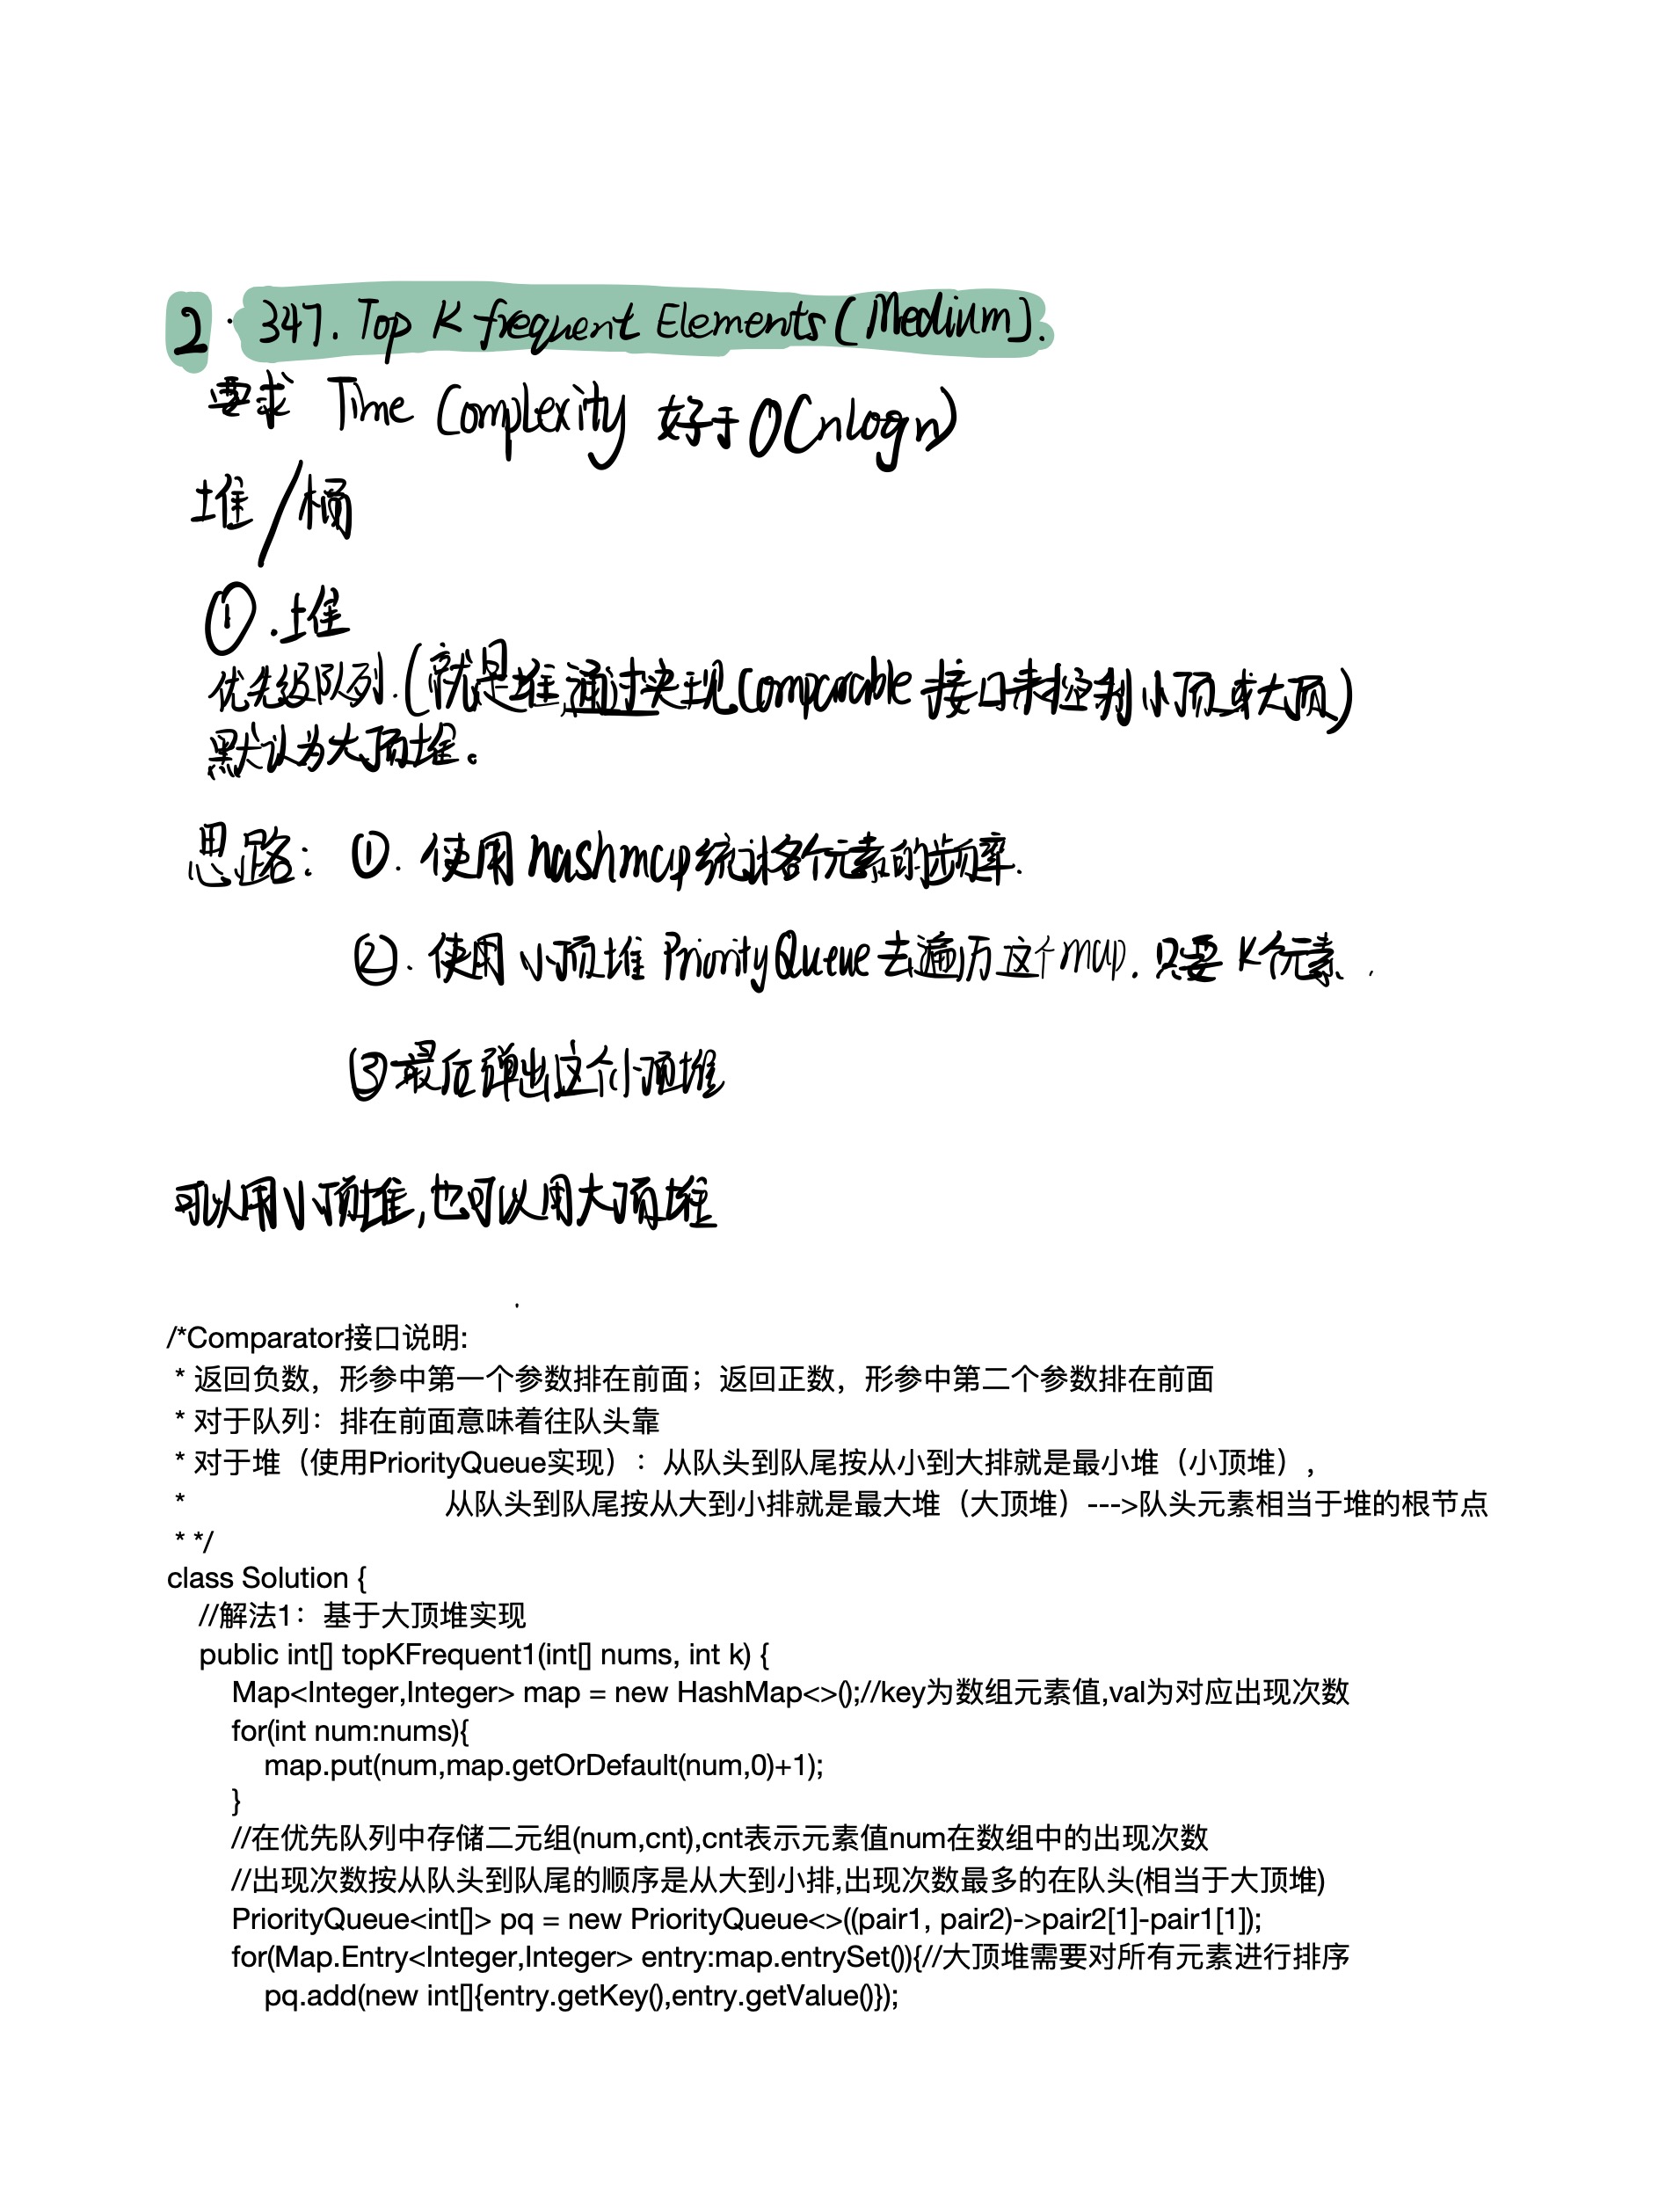 2. 347. Top K frequent Elements (Medium).
要求 Time Complexity 好于 O(nlogn)
堆/桶
①.堆
优先级队列.(就是堆,通过实现Comparable接口来控制小顶或大顶)
默认为大顶堆。
思路: ①. 使用hashmap统计各个元素的频率.
②. 使用小顶堆 PriorityQueue 去遍历这个map. 只要K个元素.
③最后弹出这个小顶堆
可以用小顶堆,也可以用大顶堆
/*Comparator接口说明:
* 返回负数，形参中第一个参数排在前面；返回正数，形参中第二个参数排在前面
* 对于队列：排在前面意味着往队头靠
* 对于堆（使用PriorityQueue实现）：从队头到队尾按从小到大排就是最小堆（小顶堆），
* 从队头到队尾按从大到小排就是最大堆（大顶堆）--->队头元素相当于堆的根节点
* */
class Solution {
//解法1：基于大顶堆实现
public int[] topKFrequent1(int[] nums, int k) {
Map<Integer,Integer> map = new HashMap<>();//key为数组元素值,val为对应出现次数
for(int num:nums){
map.put(num,map.getOrDefault(num,0)+1);
}
//在优先队列中存储二元组(num,cnt),cnt表示元素值num在数组中的出现次数
//出现次数按从队头到队尾的顺序是从大到小排,出现次数最多的在队头(相当于大顶堆)
PriorityQueue<int[]> pq = new PriorityQueue<>((pair1, pair2)->pair2[1]-pair1[1]);
for(Map.Entry<Integer,Integer> entry:map.entrySet()){//大顶堆需要对所有元素进行排序
pq.add(new int[]{entry.getKey(),entry.getValue()});